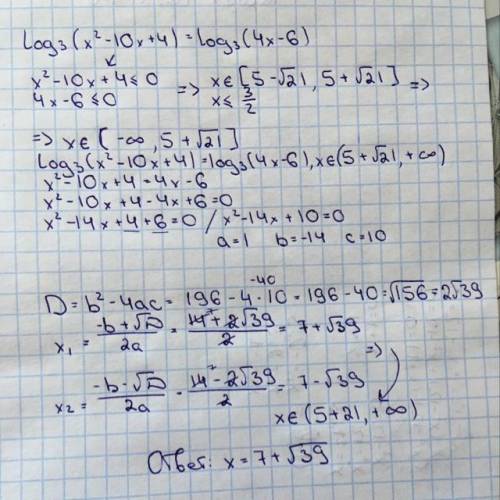 log₃(x²-10x+4)=log₃(4x-6)
x²-10x+4≤0 => x∈[5-√21, 5+√21] =>
4x-6≤0 x≤ 3/2
=> x∈[-∞, 5+√21]
log₃(x²-10x+4)=log₃(4x-6), x∈(5+√21, +∞)
x²-10x+4=4x-6
x²-10x+4-4x+6=0
x²-14x+4+6=0 / x²-14x+10=0
a=1 b=-14 c=10
-40
D=b²-4ac= 196-4·10=196-40=√156=2√39
x₁ = -b+√D / 2a = 14+2√39 / 2 = 7+√39
=>
x₂ = -b-√D / 2a = 14-2√39 / 2 = 7-√39
x∈(5+21, +∞)
Ответ: x=7+√39